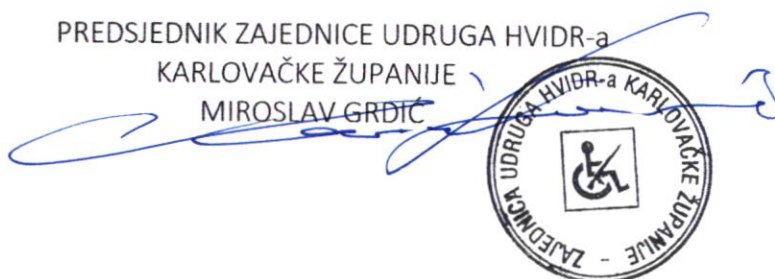 PREDSJEDNIK ZAJEDNICE UDRUGA HVIDR-a
KARLOVAČKE ŽUPANIJE
MIROSLAV GRDIĆ
ZAJEDNICA UDRUGA HVIDR-a KARLOVAČKE ŽUPANIJE -